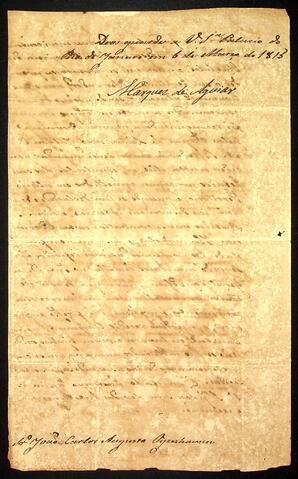 Deos guarde a V. S.ª Palacio do
Rio de Janeiro em 6 de Março de 1816
Marquez de Aguiar
Sr. João Carlos Augusto Oyenhausen